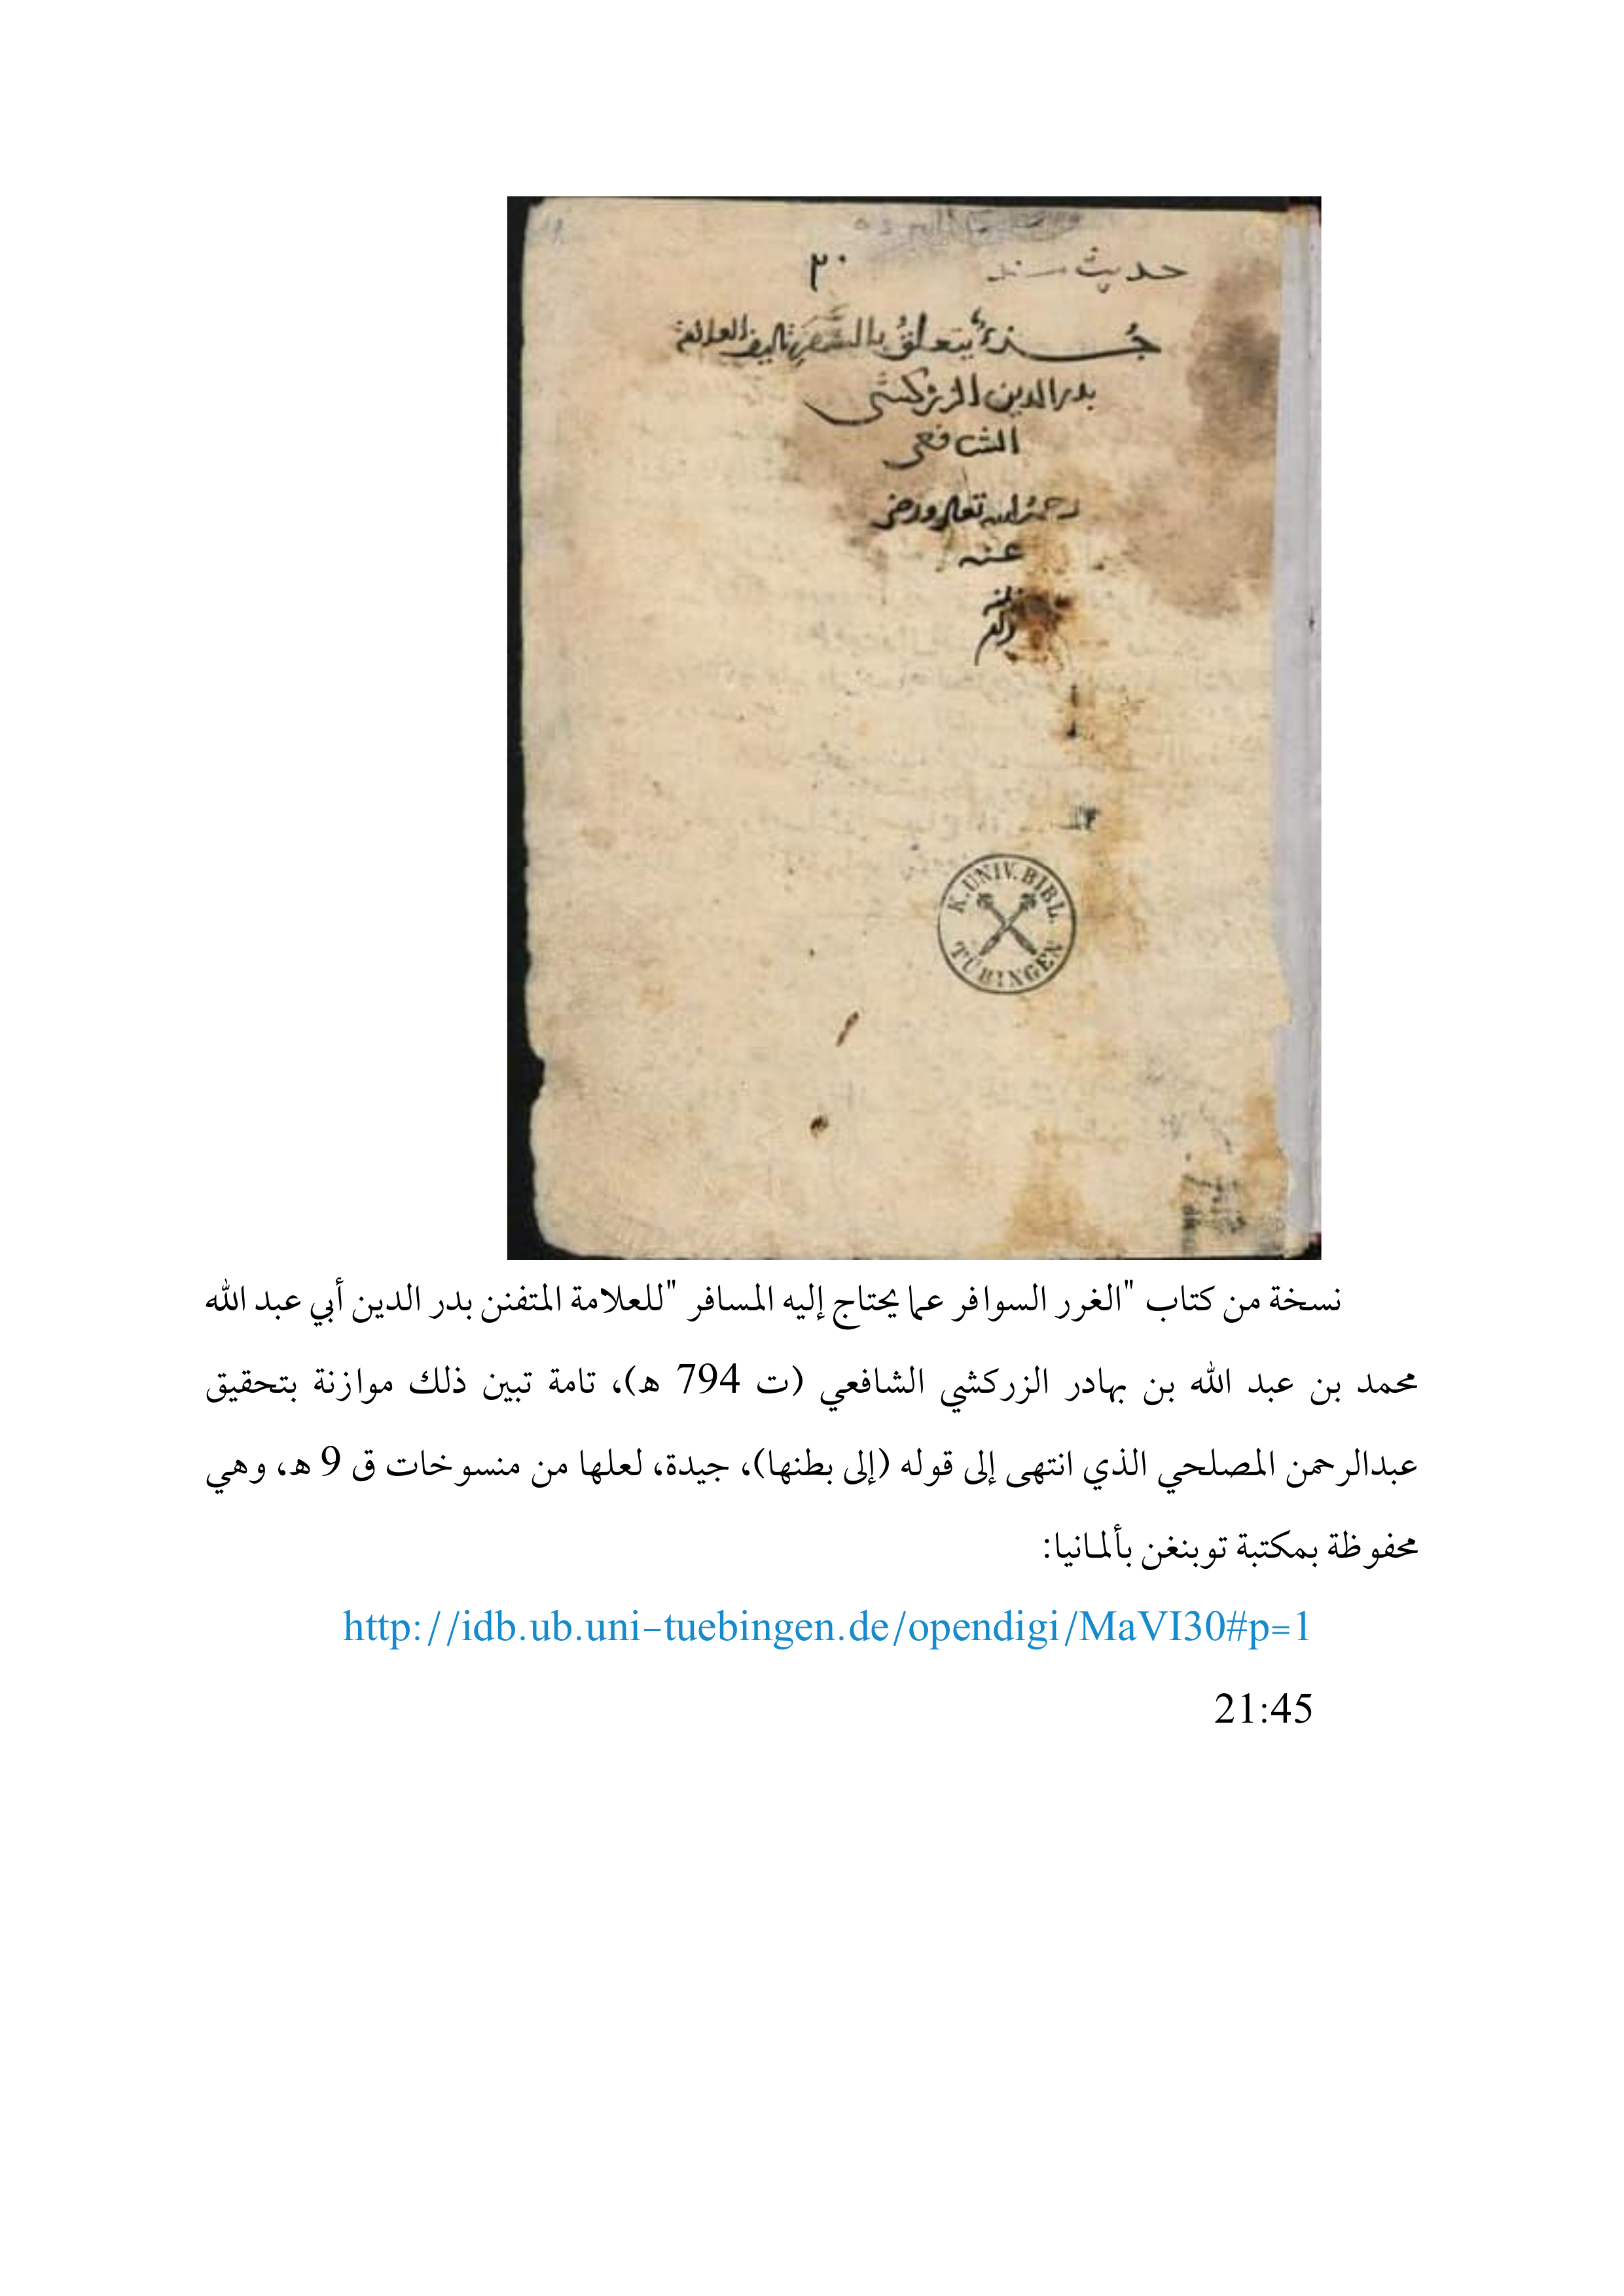 حديث مسند ٣٠
جُزءٌ يتعلقُ بالسَّفَرِ تأليف العلامة
بدر الدين الزركشي
الشافعي
رحمه الله تعالى ورضي
عنه
K. UNIV. BIBL.
TÜBINGEN
نسخة من كتاب "الغرر السوافر عما يحتاج إليه المسافر "للعلامة المتفنن بدر الدين أبي عبد الله
محمد بن عبد الله بن بهادر الزركشي الشافعي (ت 794 ه)، تامة تبين ذلك موازنة بتحقيق
عبدالرحمن المصلحي الذي انتهى إلى قوله (إلى بطنها)، جيدة، لعلها من منسوخات ق 9 ه، وهي
محفوظة بمكتبة توبنغن بألمانيا:
http://idb.ub.uni-tuebingen.de/opendigi/MaVI30#p=1
21:45